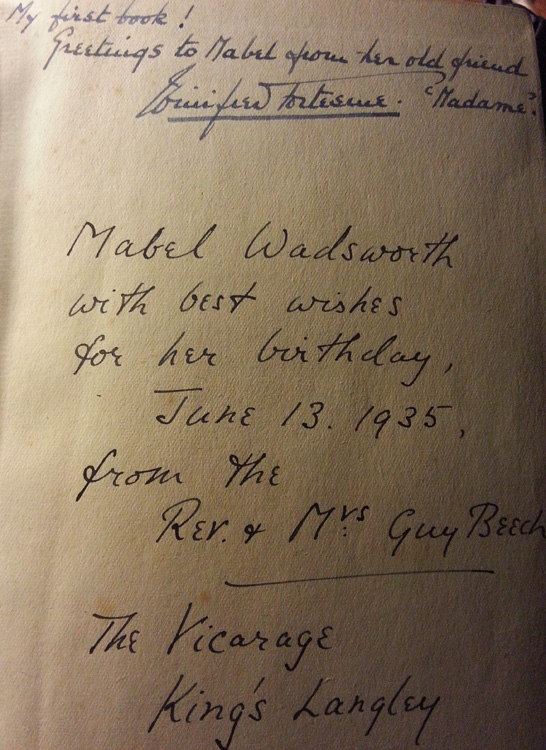 My first book!
Greetings to Mabel from her old friend
Winifred Fortescue. "Madame".
Mabel Wadsworth
with best wishes
for her birthday,
June 13. 1935,
from the
Rev. & Mrs Guy Beech
The Vicarage
King's Langley